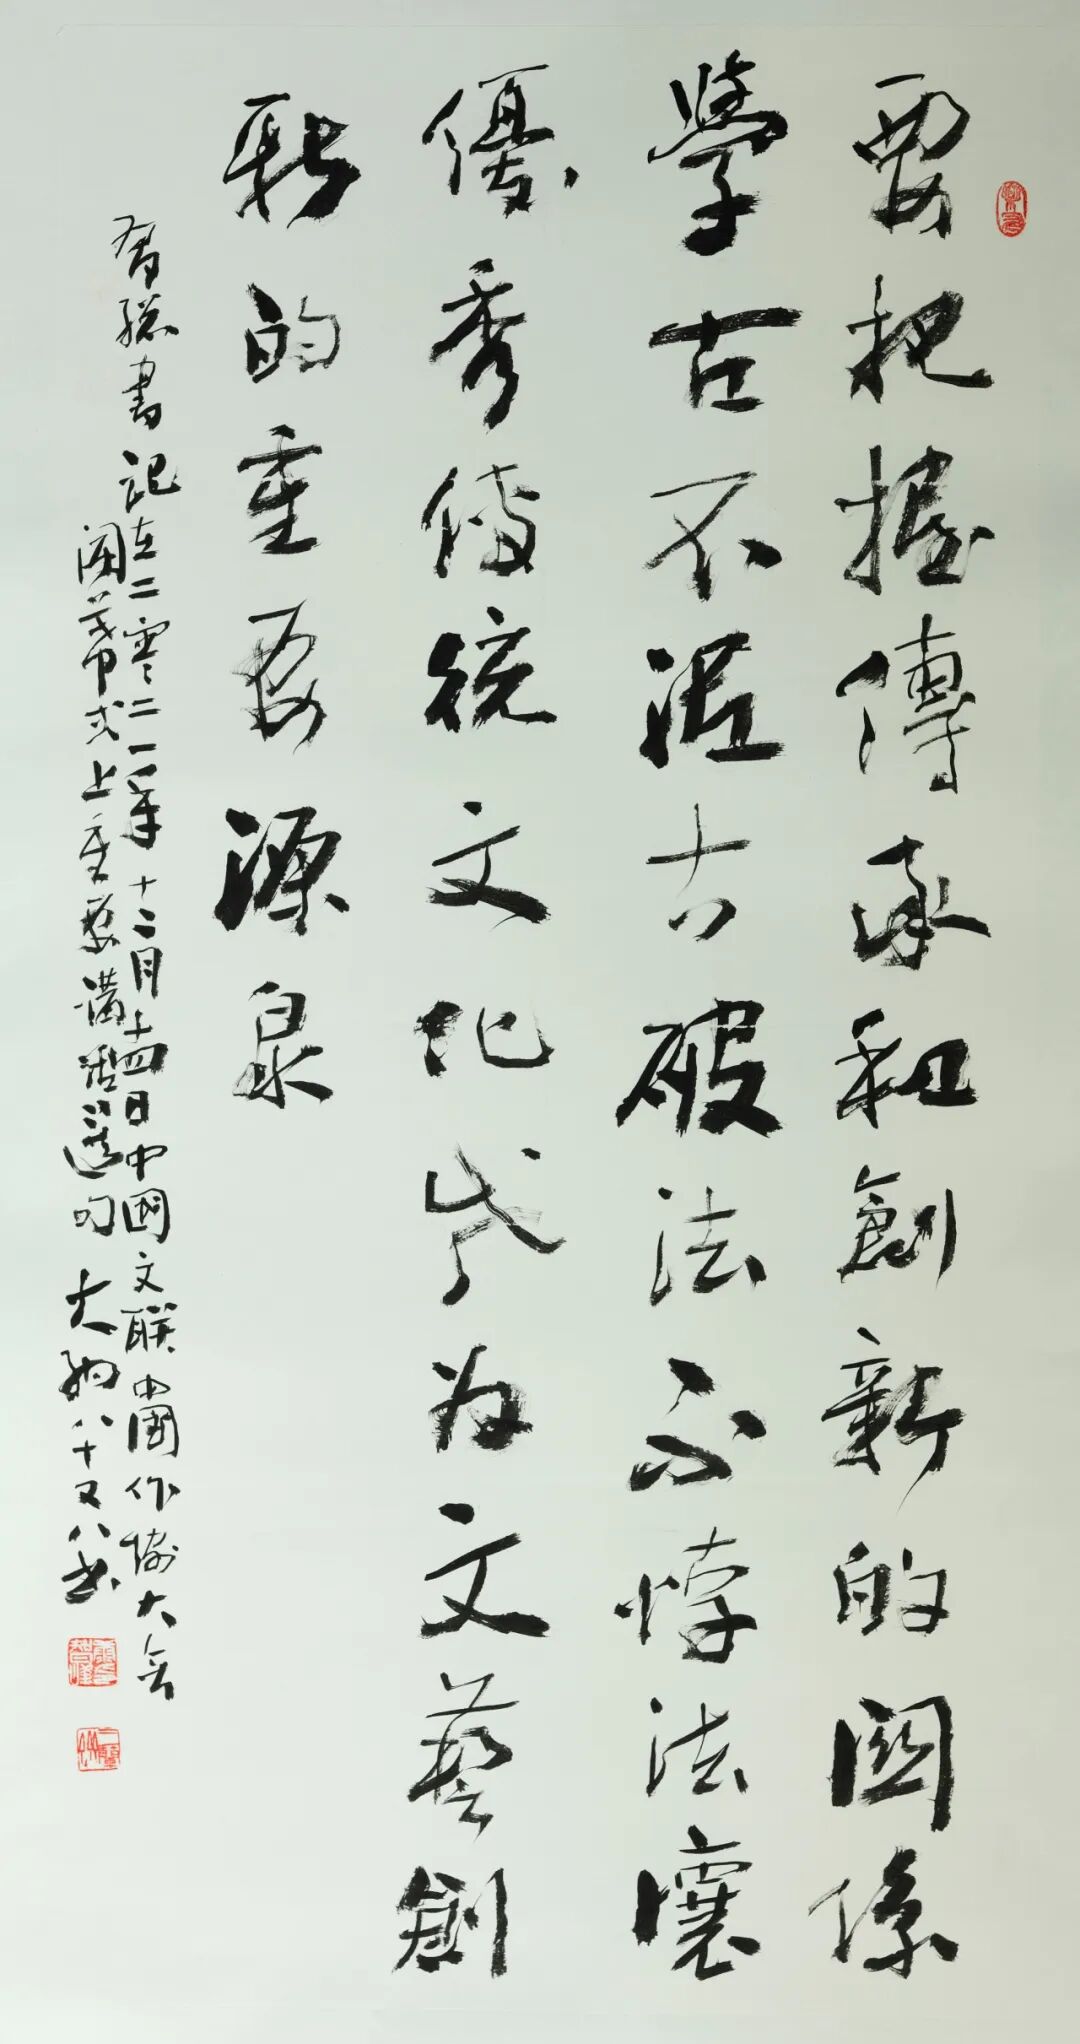 要把握傳承和創新的關係
學古不泥古破法不悖法讓
優秀傳統文化成为文藝創
新的重要源泉
習總書記在二零二一年十二月十四日中國文联中國作協大会
開幕式上重要講話選句 大 八十又八書